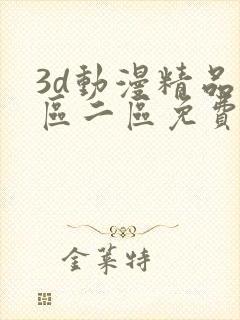 3d動漫精品
區二區免費
金萊特